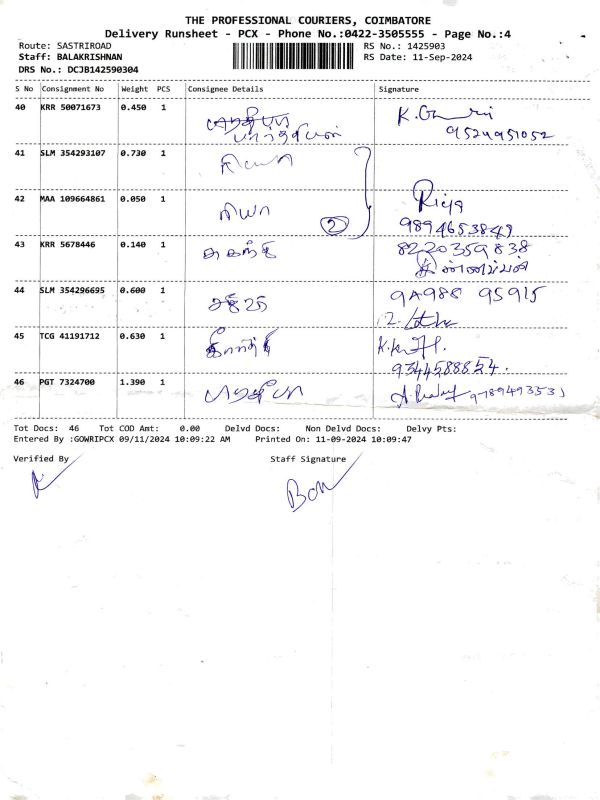 THE PROFESSIONAL COURIERS, COIMBATORE
Delivery Runsheet - PCX - Phone No.:0422-3505555 - Page No.:4
Route: SASTRIROAD RS No.: 1425903
Staff: BALAKRISHNAN RS Date: 11-Sep-2024
DRS No.: DCJB142590304
S No Consignment No Weight PCS Consignee Details Signature
40 KRR 50071673 0.450 1
9524951052
41 SLM 354293107 0.730 1
42 MAA 109664861 0.050 1 ரியா 2 Riya
9894653849
43 KRR 5678446 0.140 1 சுகந்தி 8220359838
44 SLM 354296695 0.600 1
45 TCG 41191712 0.630 1
9344588854.
46 PGT 7324700 1.390 1 9789493531
Tot Docs: 46 Tot COD Amt: 0.00 Delvd Docs: Non Delvd Docs: Delvy Pts:
Entered By :GOWRIPCX 09/11/2024 10:09:22 AM Printed On: 11-09-2024 10:09:47
Verified By Staff Signature